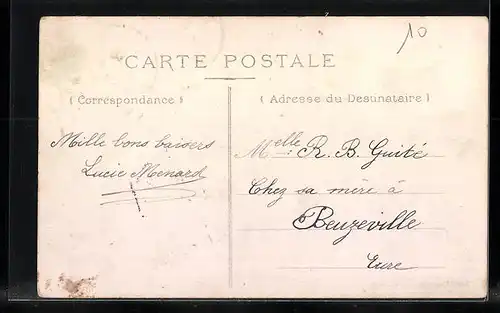 10
CARTE POSTALE
(Correspondance)
Mille bons baisers
Lucie Menard
(Adresse du Destinataire)
Melle R. B. Guité
Chez sa mère à
Beuzeville
Eure